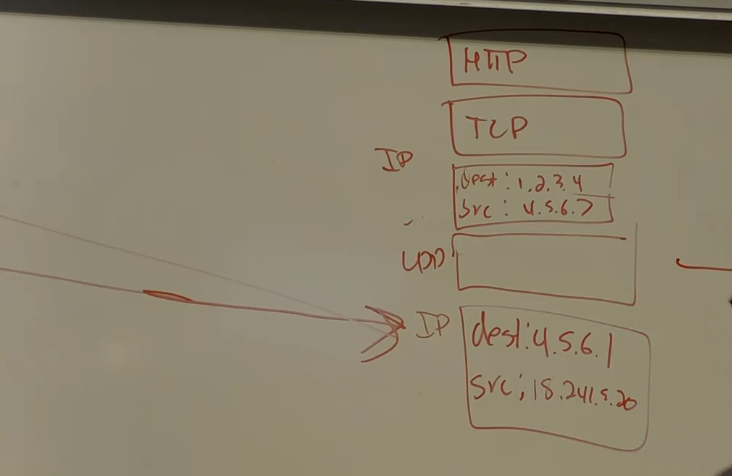 HTTP
TCP
IP
dest: 1.2.3.4
src: 4.5.6.7
UDP
IP
dest: 4.5.6.1
src: 18.241.5.20